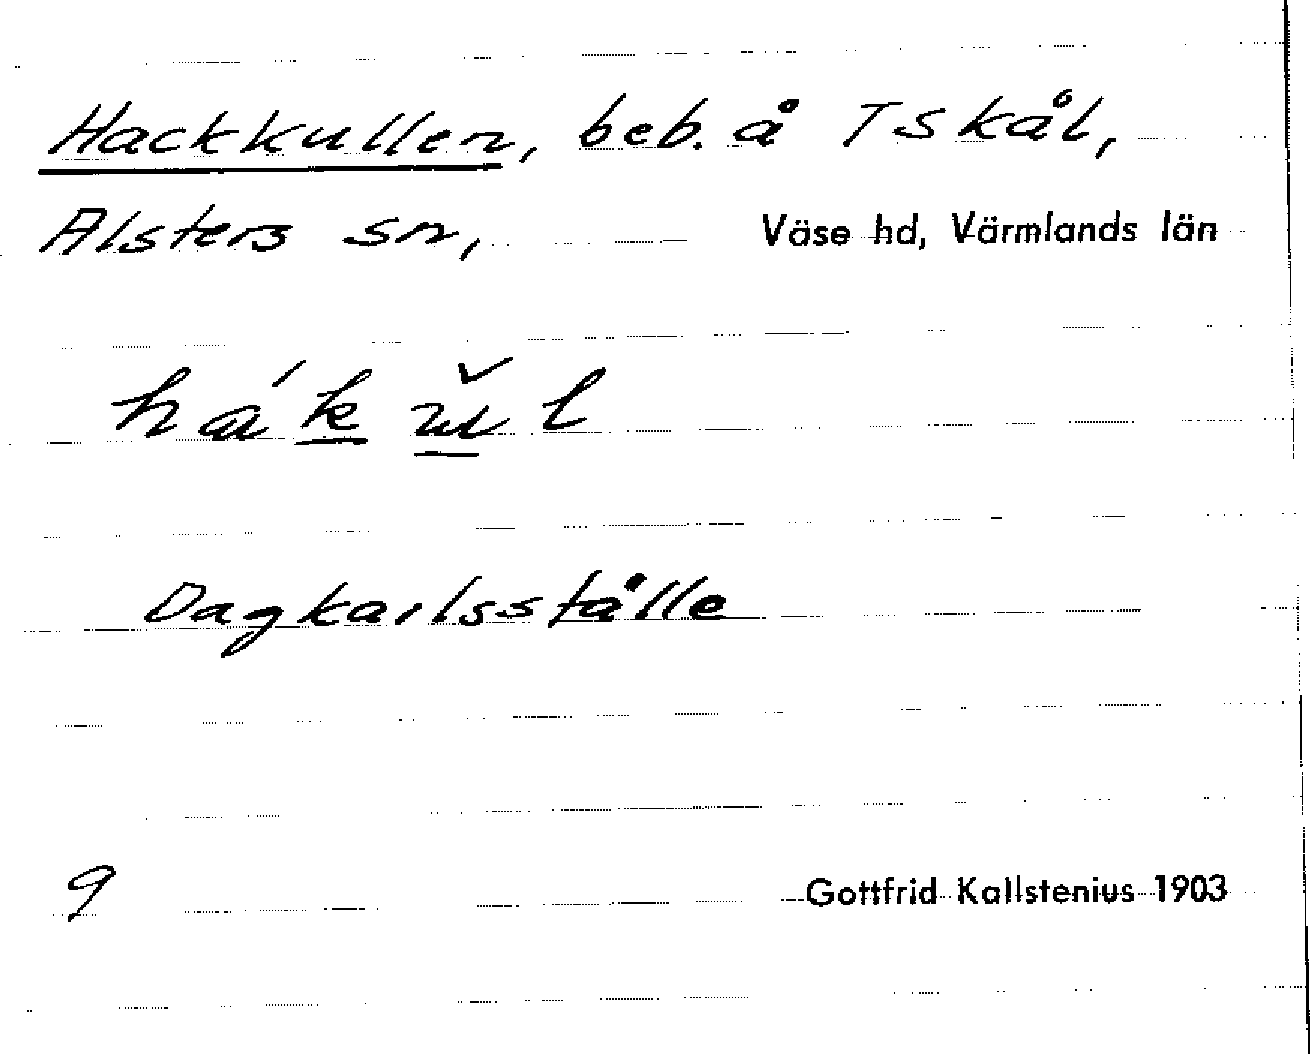 Hackkullen, beb. å Tskål,
Alsters sn, Väse hd, Värmlands län
Dagkarlsställe
9
Gottfrid Kallstenius 1903